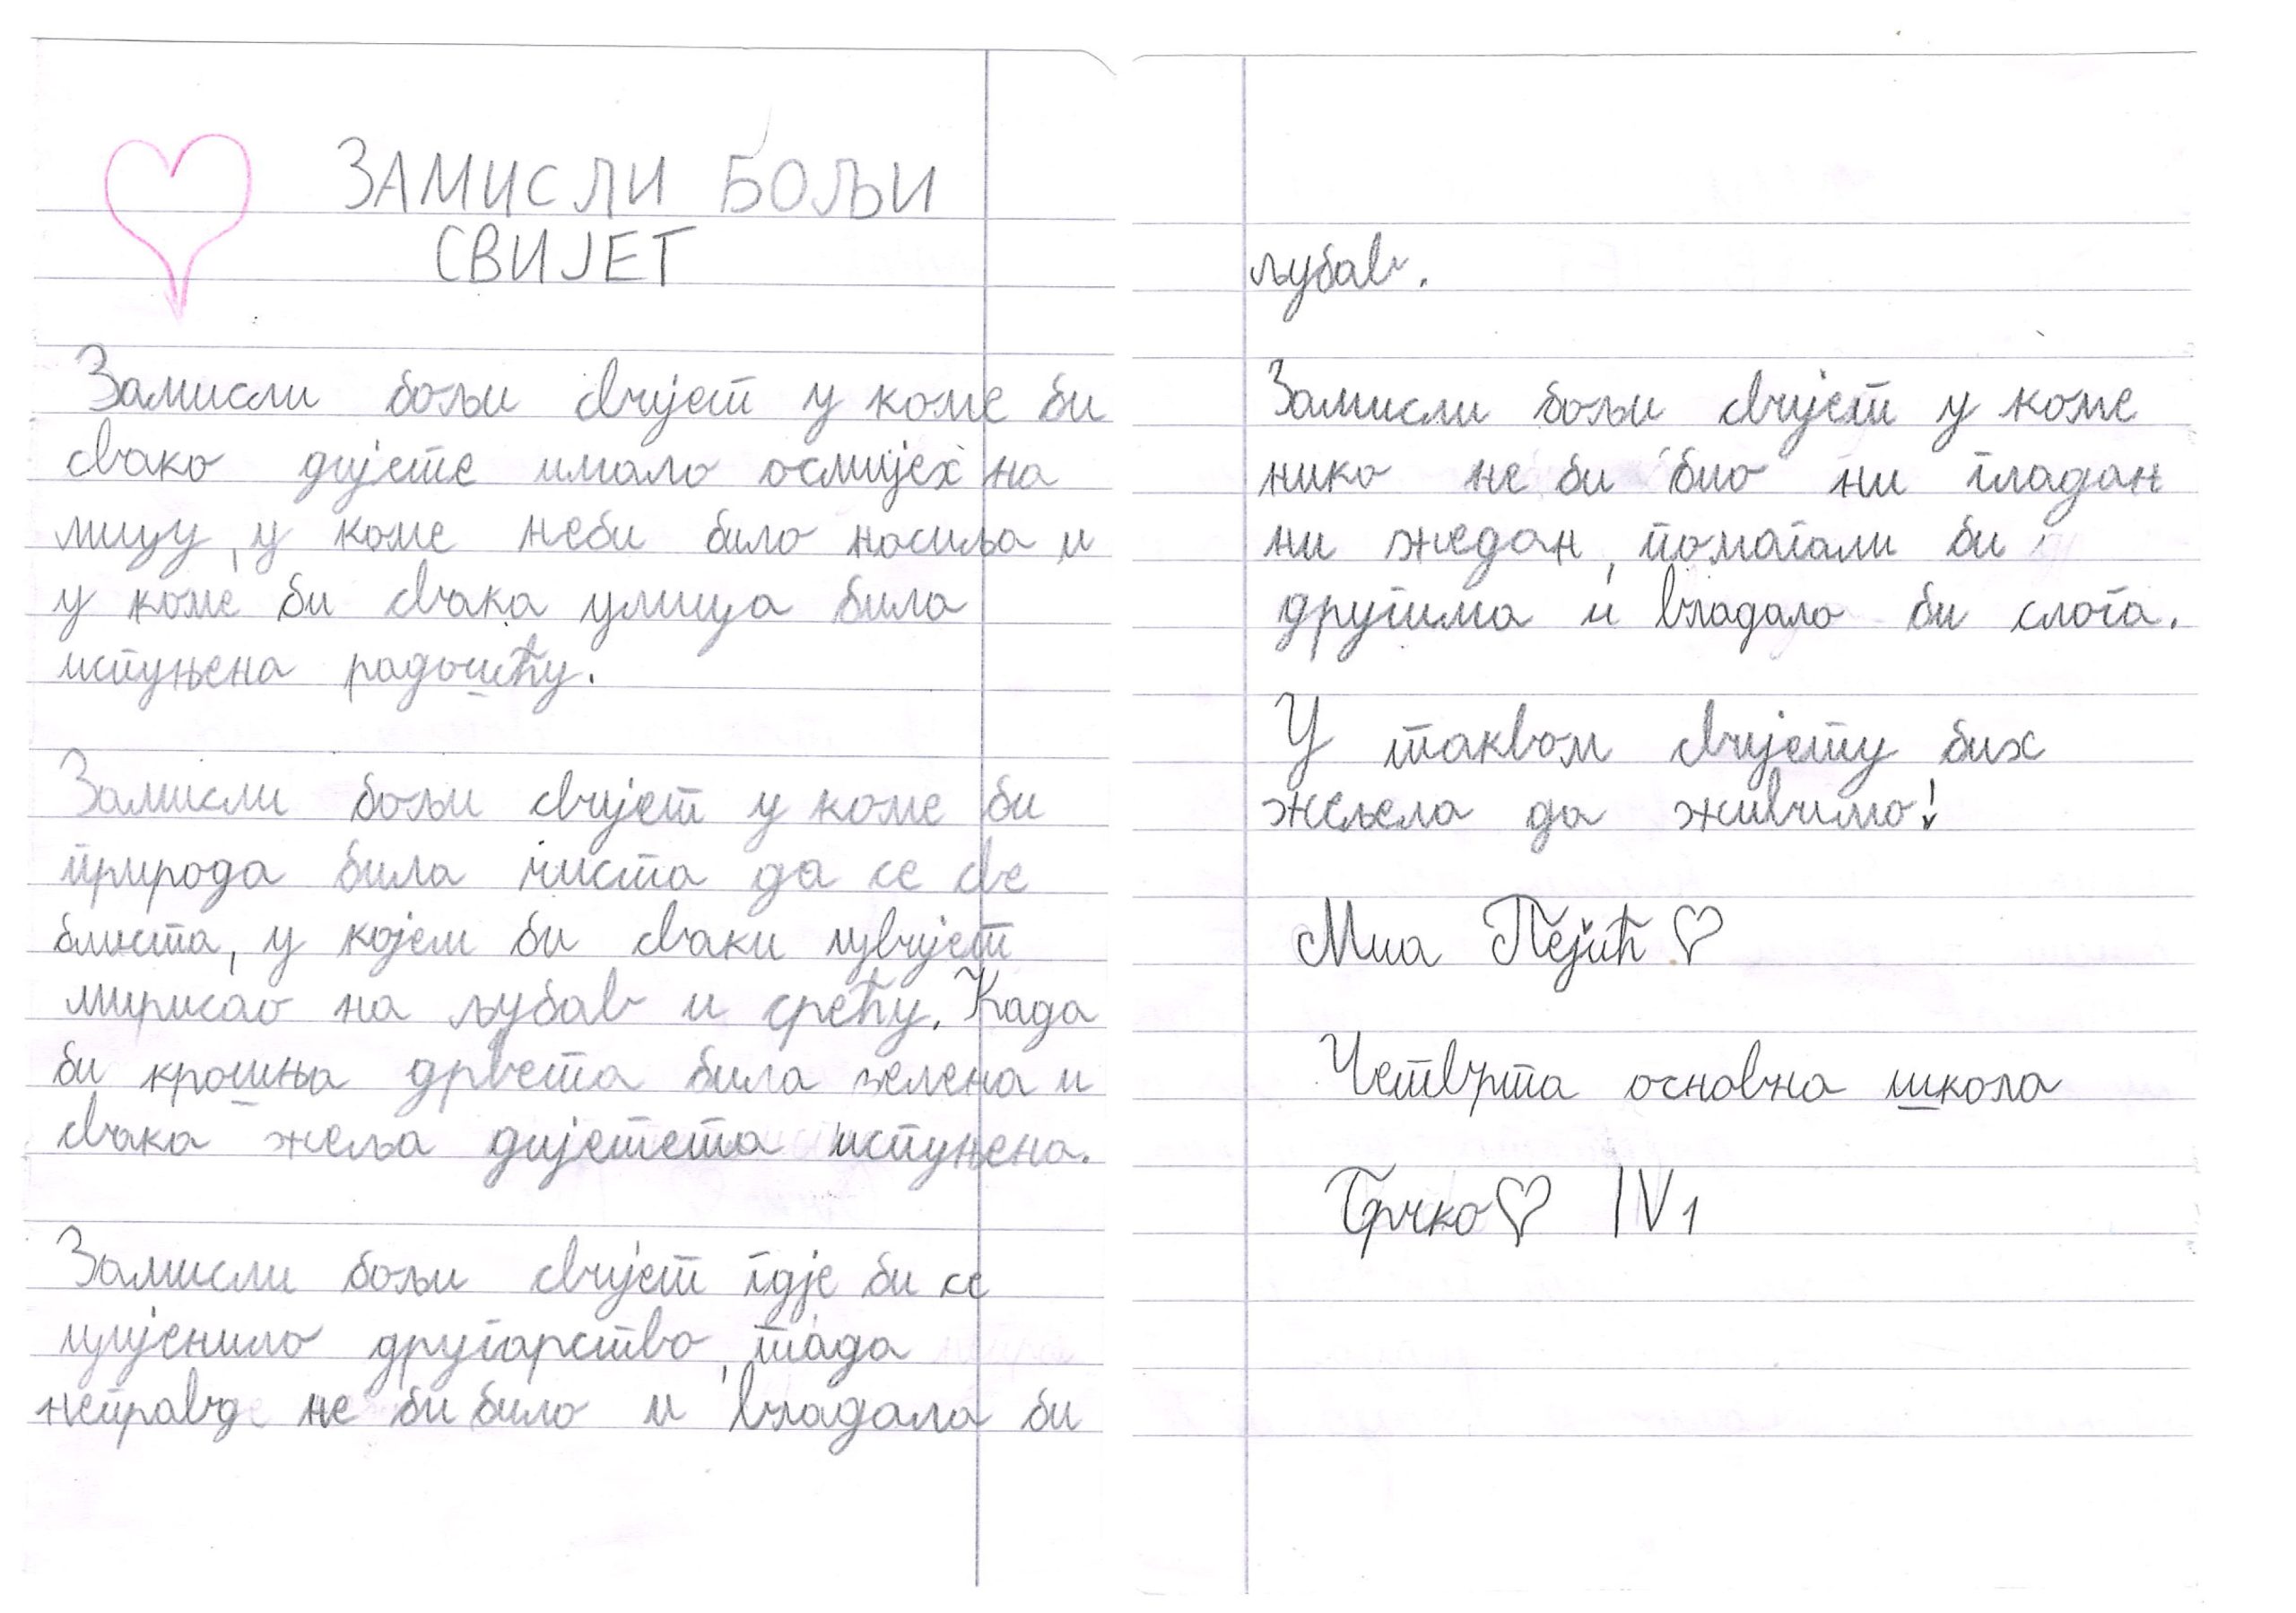 ЗАМИСЛИ БОЉИ
СВИЈЕТ
Замисли бољи свијет у коме би
свако дијете имало осмијех на
лицу, у коме неби било насиља и
у коме би свака улица била
испуњена радошћу.
Замисли бољи свијет у коме би
природа била чиста да се све
блиста, у којем би сваки цвијет
мирисао на љубав и срећу. Када
би крошња дрвета била зелена и
свака жеља дијетета испуњена.
Замисли бољи свијет гдје би се
цијенило другарство, тада
неправде не би било и владала би
љубав.
Замисли бољи свијет у коме
нико не би био ни гладан
ни жедан, помагали би
другима и владала би слога.
У таквом свијету бих
жељела да живимо!
Миа Пејић ♡
Четврта основна школа
Брчко ♡ IV1